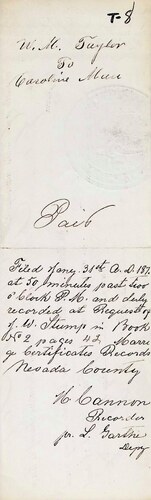 T-8
W. M. Taylor
To
Caroline
Paid
Filed Jany. 31th A.D. 187
at 50 minutes past two
o'Clock P.M. and duly
recorded at Request of
J. W. Stump in Book
No 2 pages 42 Marri
ge Certificates Records
Nevada County
H Cannon
Recorder
pr. L. Garthe
Depy